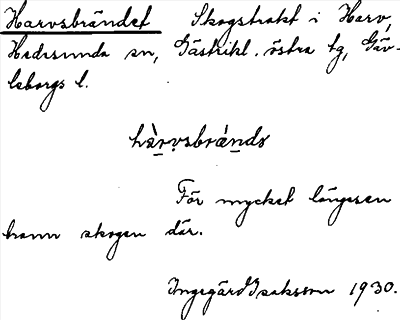 Harvsbrändet Skogstrakt i Harv,
Hedesunda sn, Gästrikl. östra tg, Gäv-
leborgs l.
hàrvsbrä́ndə
För mycket längesen
brann skogen där.
Ingegärd Isaksson 1930.